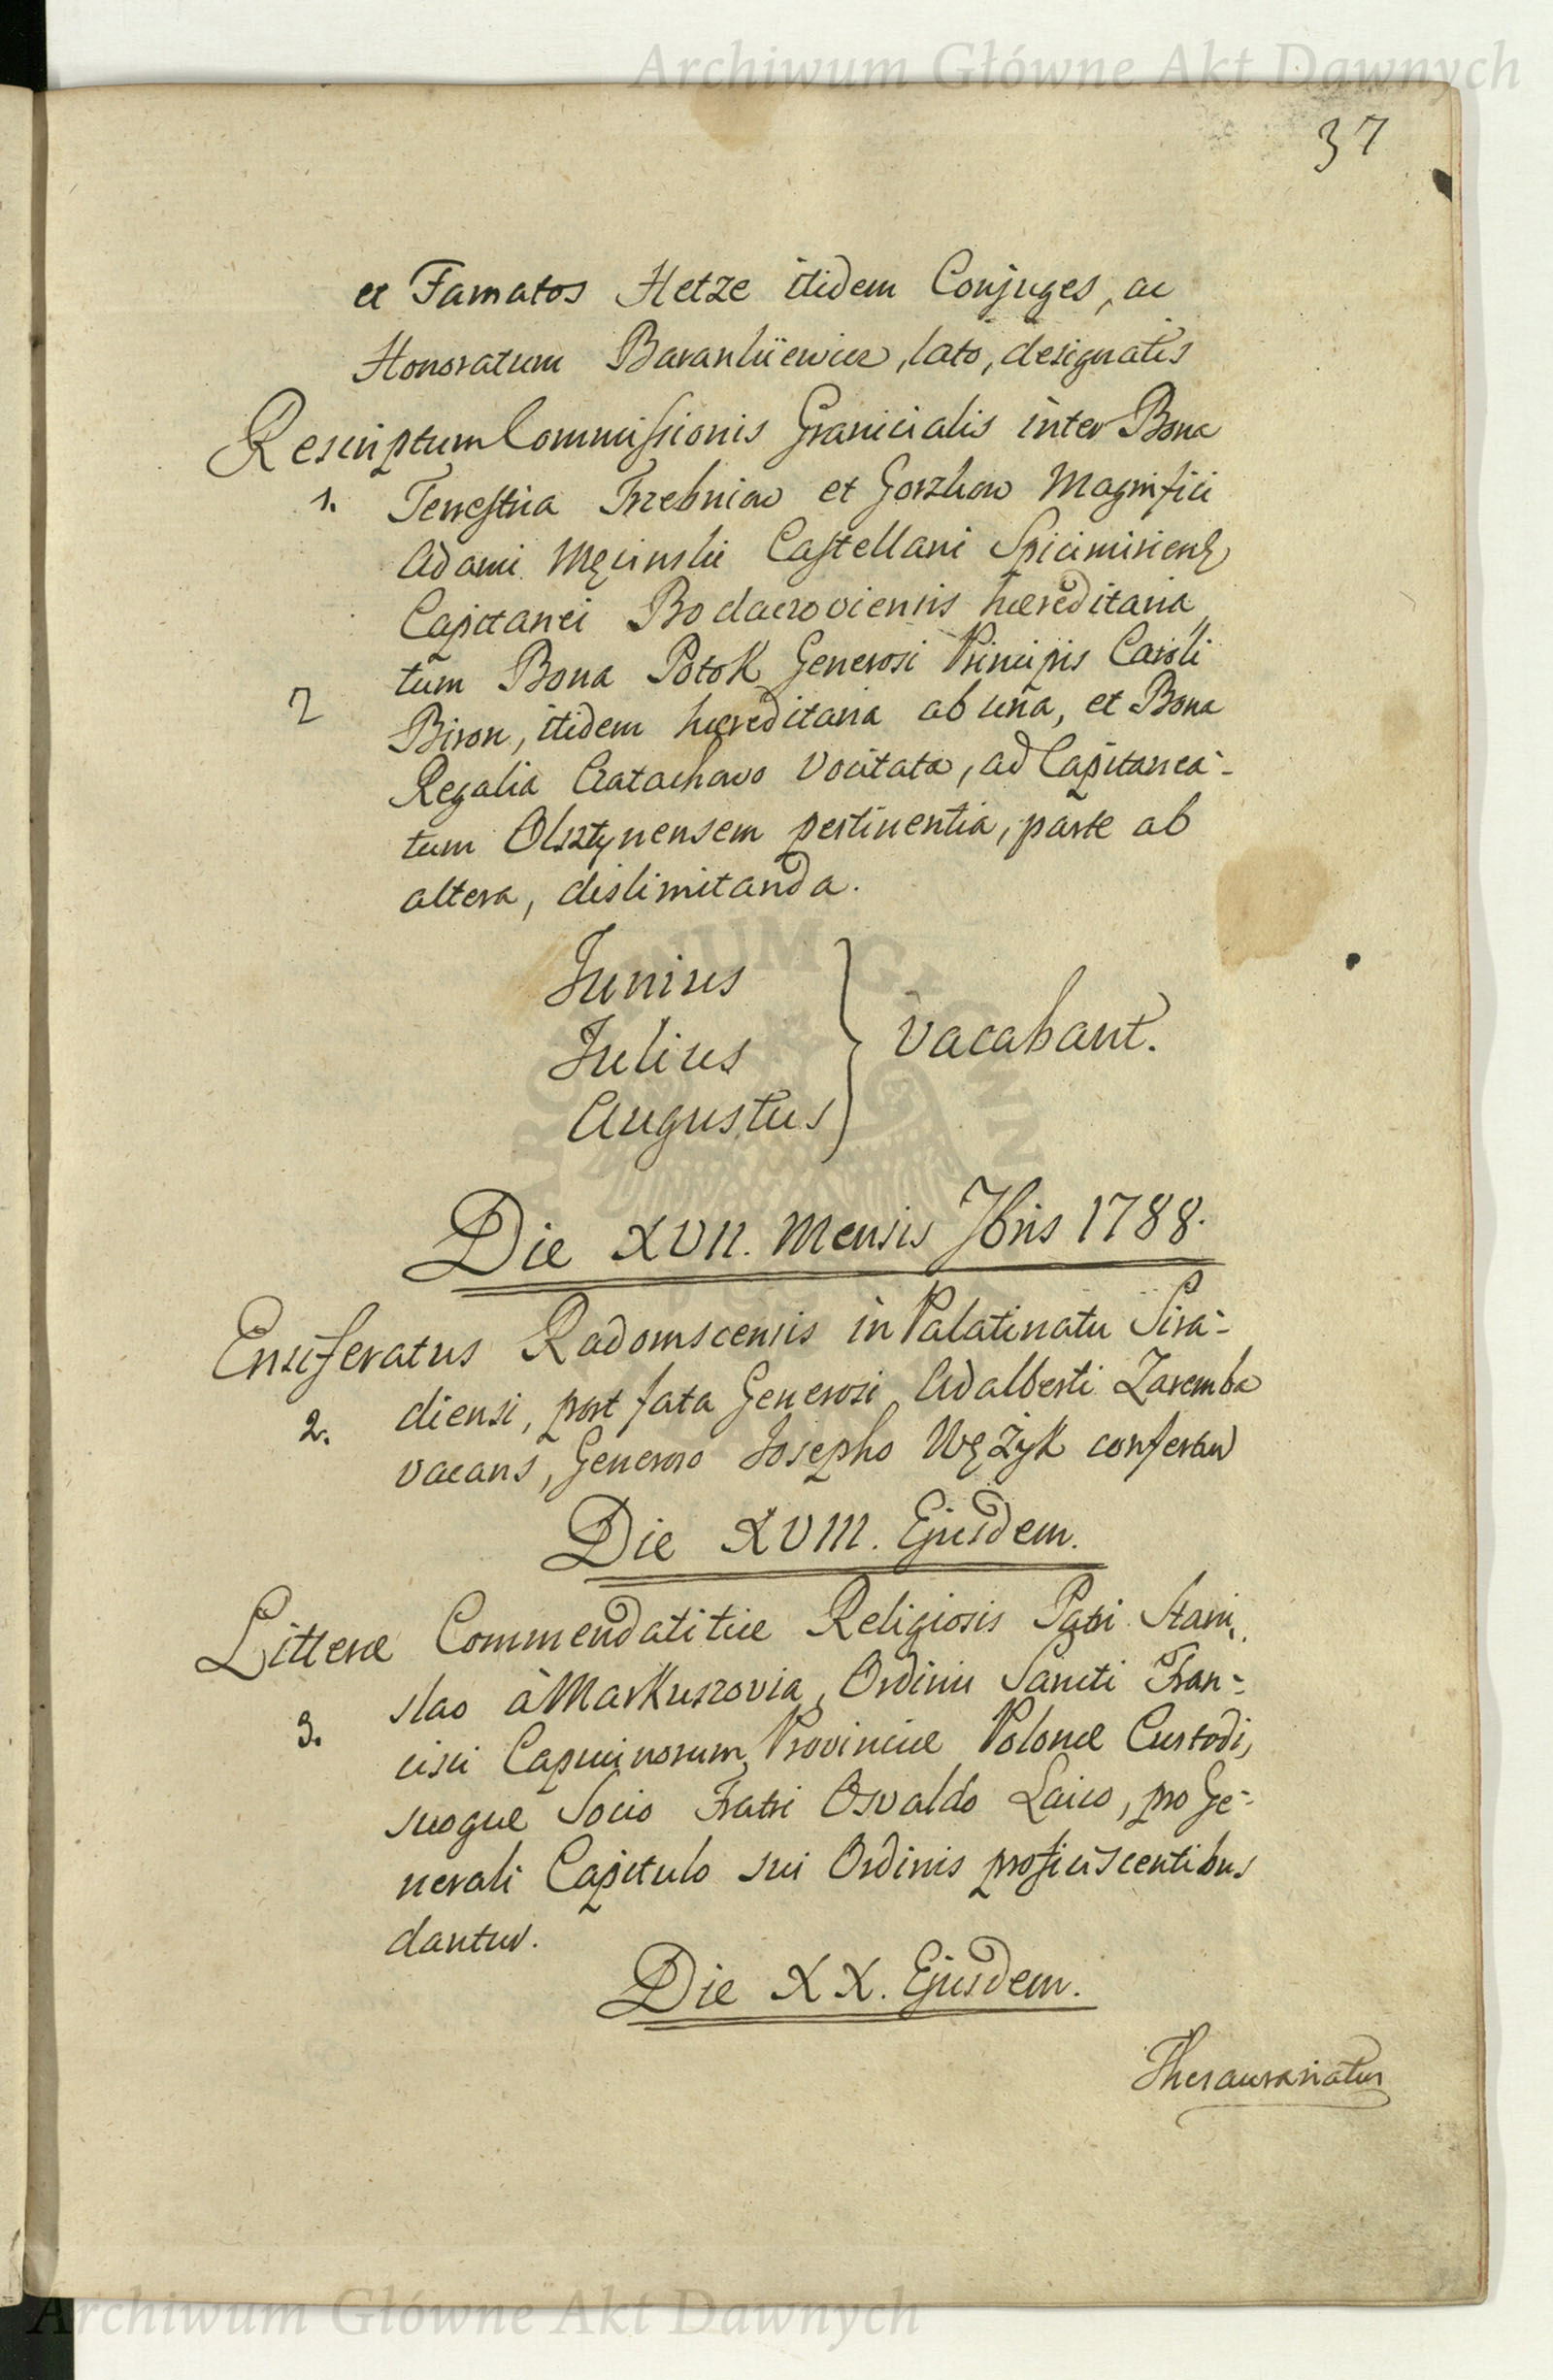 Archiwum Główne Akt Dawnych
37
et Famatos Hetze itidem Conjuges, ac
Honoratum Barankiiewicz, lato, designatis
Rescriptum Commissionis Granicialis inter Bona
1. Terrestria Trzebniow et Gorzkow Magnifici
Adami Męcinski Castellani Spicimiriens
Capitanei Bodaczoviensis hæreditaria,
tum Bona Potok Generosi Principis Caroli
2 Biron, itidem hæreditaria ab una, et Bona
Regalia Czatachowo vocitata, ad Capitanea-
tum Olsztynensem pertinentia, parte ab
altera, dislimitanda.
Junius
Julius
Augustus
vacabant.
Die XVII. Mensis 7bris 1788.
Ensiferatus Radomscensis in Palatinatu Sira-
diensi, post fata Generosi Adalberti Zaremba
2. vacans, Generoso Josepho Wężyk confertur
Die XVIII. Ejusdem.
Litteræ Commendatitiæ Religiosis Patri Stani-
slao à Markuszovia, Ordinis Sancti Fran-
3. cisci Capucinorum, Provinciæ Polonæ Custodi,
suoque Socio Fratri Osvaldo Laico, pro Ge-
nerali Capitulo sui Ordinis proficiscentibus
dantur.
Die XX. Ejusdem.
Thesaurariatus
Archiwum Główne Akt Dawnych